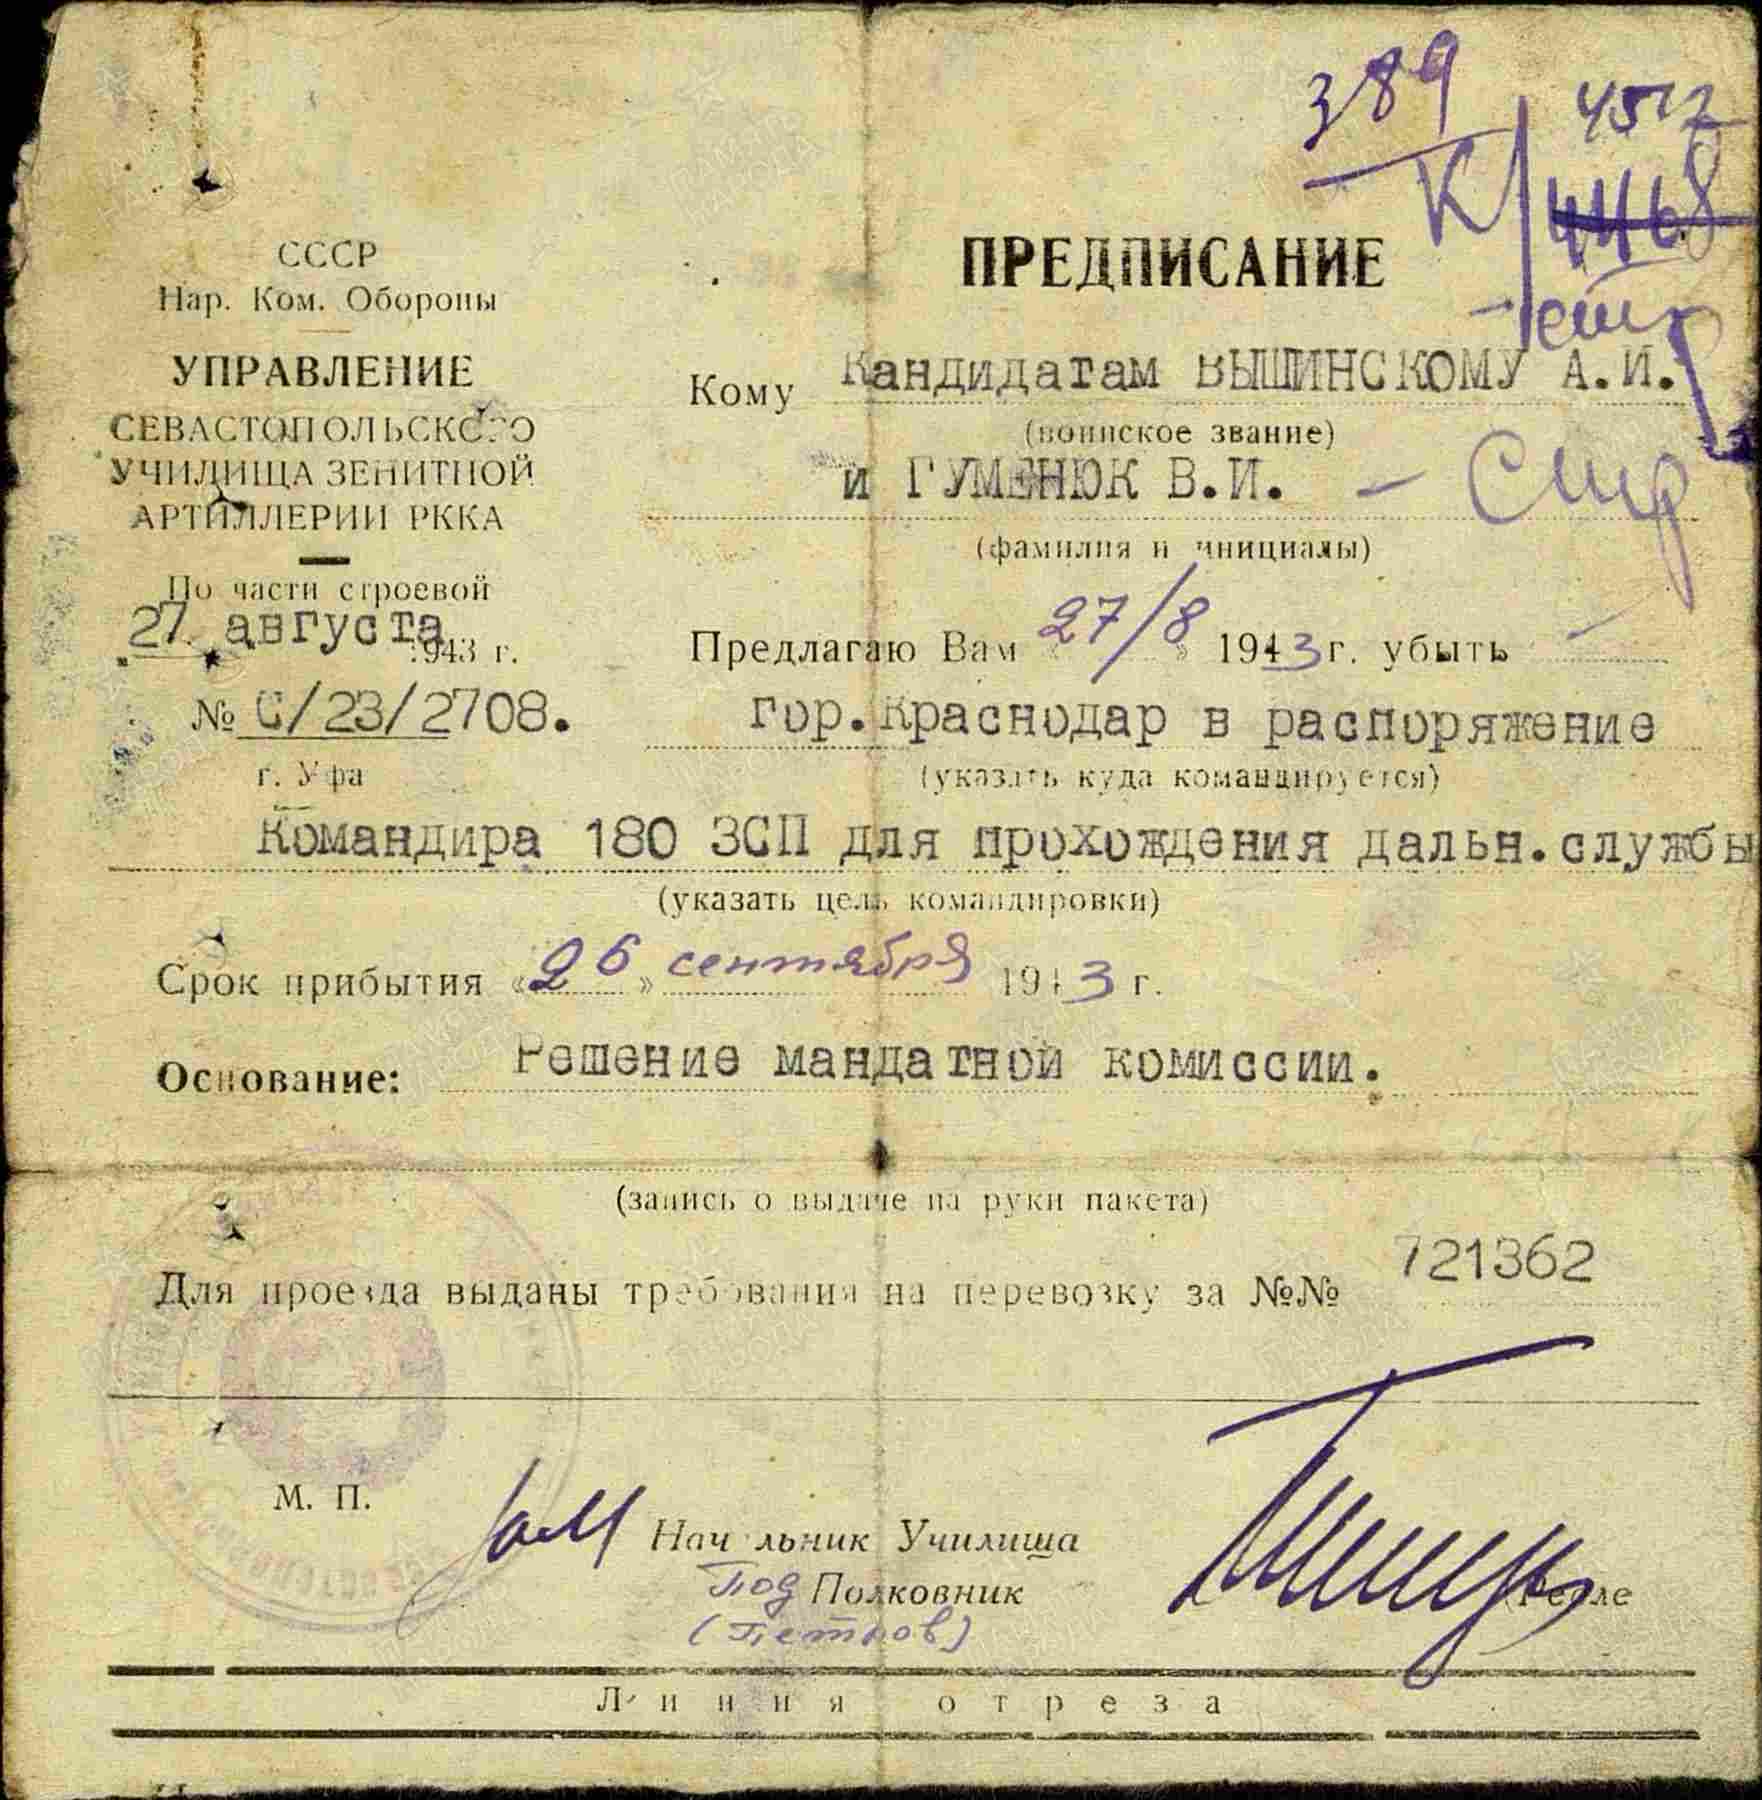 389
4512
К
44168
стр
СССР
Нар. Ком. Обороны
УПРАВЛЕНИЕ
СЕВАСТОПОЛЬСКОГО
УЧИЛИЩА ЗЕНИТНОЙ
АРТИЛЛЕРИИ РККА
По части строевой
27 августа 1943 г.
№ С/23/2708.
г. Уфа
ПРЕДПИСАНИЕ
Кому Кандидатам ВЫШИНСКОМУ А.И.
(воинское звание)
и ГУМЕНЮК В.И. - стр
(фамилия и инициалы)
Предлагаю Вам «27/8» 1943 г. убыть
гор. Краснодар в распоряжение
(указать куда командируется)
Командира 180 ЗСП для прохождения дальн. службы
(указать цель командировки)
Срок прибытия «26» сентября 1943 г.
Основание: Решение мандатной комиссии.
(запись о выдаче на руки пакета)
Для проезда выданы требования на перевозку за №№ 721362
М. П.
Начальник Училища
Под Полковник
(Петров)
Линия отреза